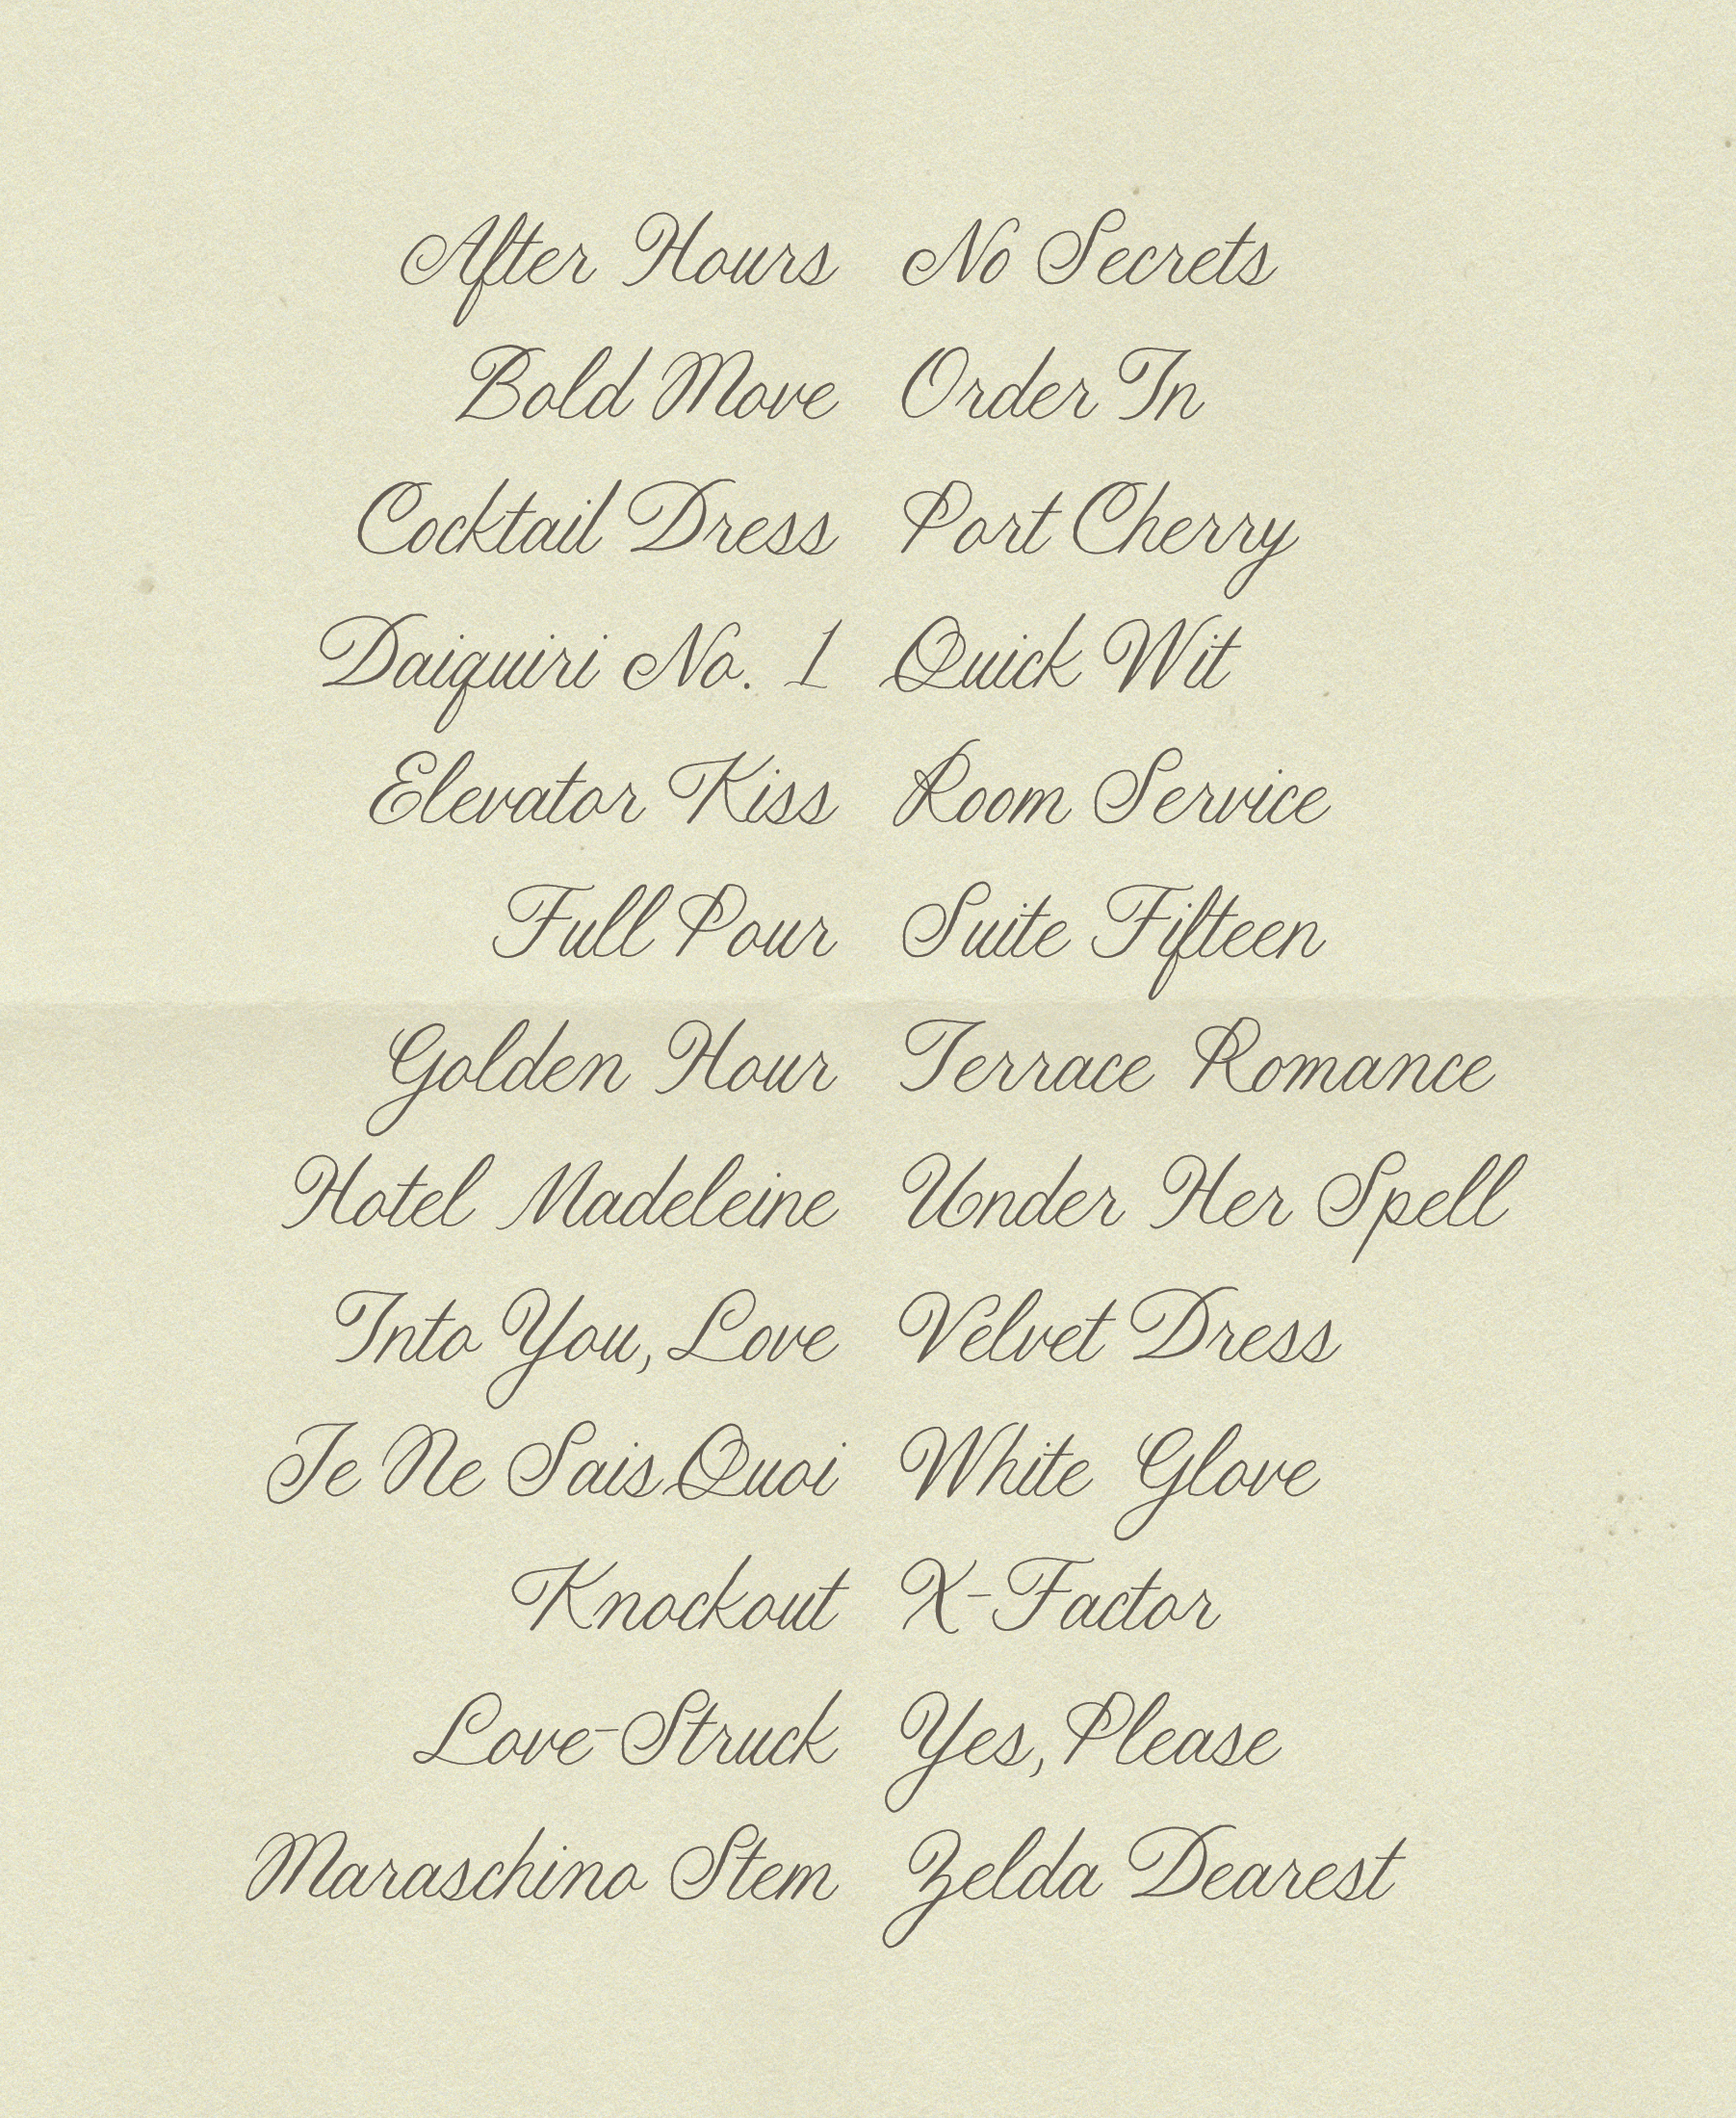 After Hours
Bold Move
Cocktail Dress
Daiquiri No. 1
Elevator Kiss
Full Pour
Golden Hour
Hotel Madeleine
Into You, Love
Je Ne Sais Quoi
Knockout
Love-Struck
Maraschino Stem
No Secrets
Order In
Port Cherry
Quick Wit
Room Service
Suite Fifteen
Terrace Romance
Under Her Spell
Velvet Dress
White Glove
X-Factor
Yes, Please
Zelda Dearest